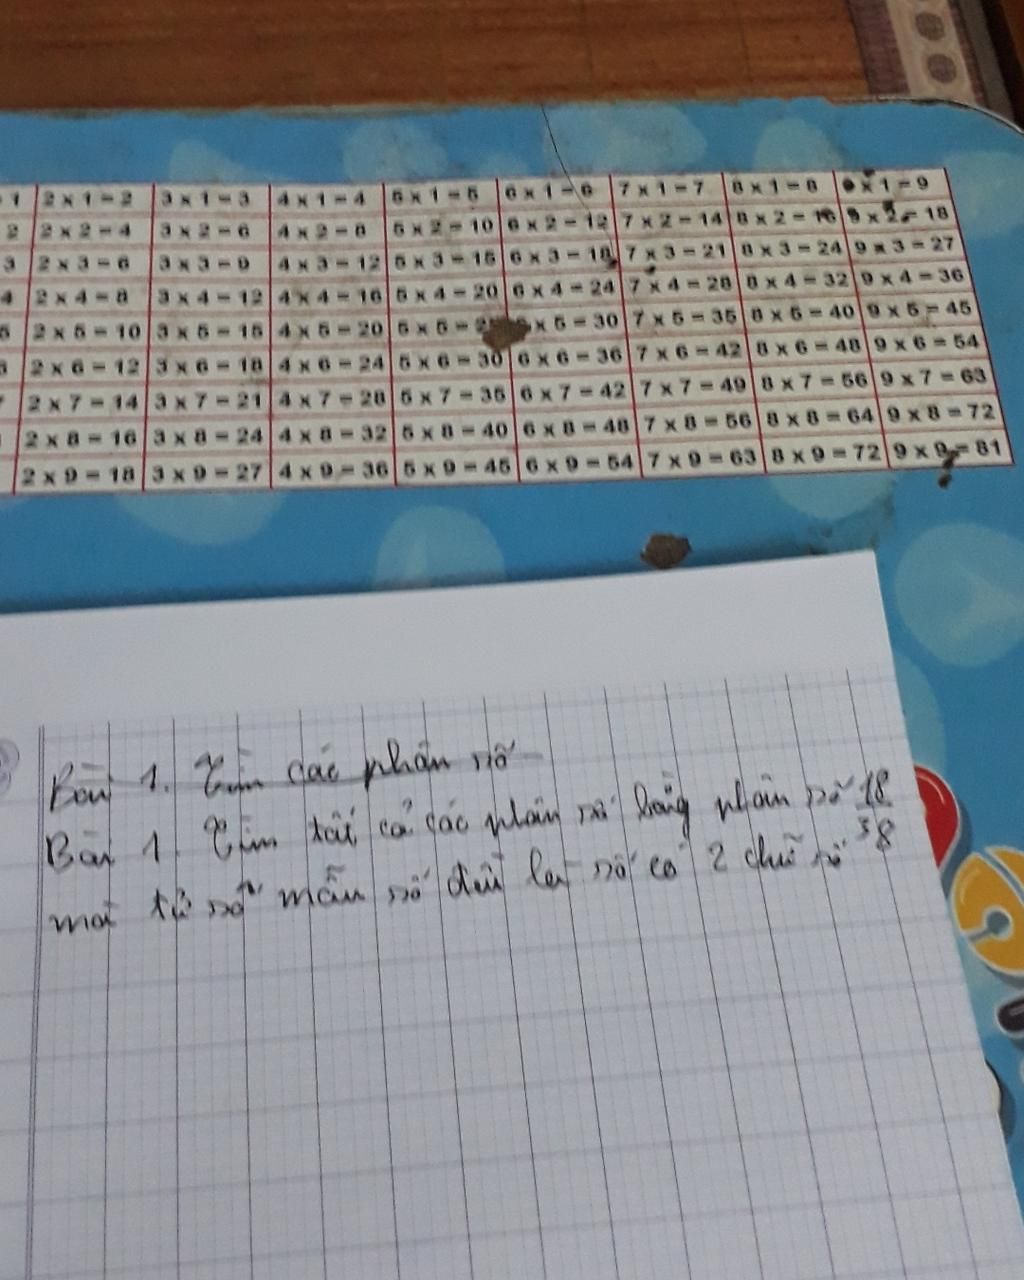 1 2 x 1 = 2 3 x 1 = 3 4 x 1 = 4 5 x 1 = 5 6 x 1 = 6 7 x 1 = 7 8 x 1 = 8 x 1 = 9
2 2 x 2 = 4 3 x 2 = 6 4 x 2 = 8 5 x 2 = 10 6 x 2 = 12 7 x 2 = 14 8 x 2 = 16 9 x 2 = 18
3 2 x 3 = 6 3 x 3 = 9 4 x 3 = 12 5 x 3 = 15 6 x 3 = 18 7 x 3 = 21 8 x 3 = 24 9 x 3 = 27
4 2 x 4 = 8 3 x 4 = 12 4 x 4 = 16 5 x 4 = 20 6 x 4 = 24 7 x 4 = 28 8 x 4 = 32 9 x 4 = 36
5 2 x 5 = 10 3 x 5 = 15 4 x 5 = 20 5 x 5 = x 5 = 30 7 x 5 = 35 8 x 5 = 40 9 x 5 = 45
2 x 6 = 12 3 x 6 = 18 4 x 6 = 24 5 x 6 = 30 6 x 6 = 36 7 x 6 = 42 8 x 6 = 48 9 x 6 = 54
2 x 7 = 14 3 x 7 = 21 4 x 7 = 28 5 x 7 = 35 6 x 7 = 42 7 x 7 = 49 8 x 7 = 56 9 x 7 = 63
2 x 8 = 16 3 x 8 = 24 4 x 8 = 32 5 x 8 = 40 6 x 8 = 48 7 x 8 = 56 8 x 8 = 64 9 x 8 = 72
2 x 9 = 18 3 x 9 = 27 4 x 9 = 36 5 x 9 = 45 6 x 9 = 54 7 x 9 = 63 8 x 9 = 72 9 x 9 = 81
Bài 1. Tìm các phân số
Bài 1. Tìm tất cả các phân số bằng phân số 18/38
mà tử số mẫu số đều là số có 2 chữ số